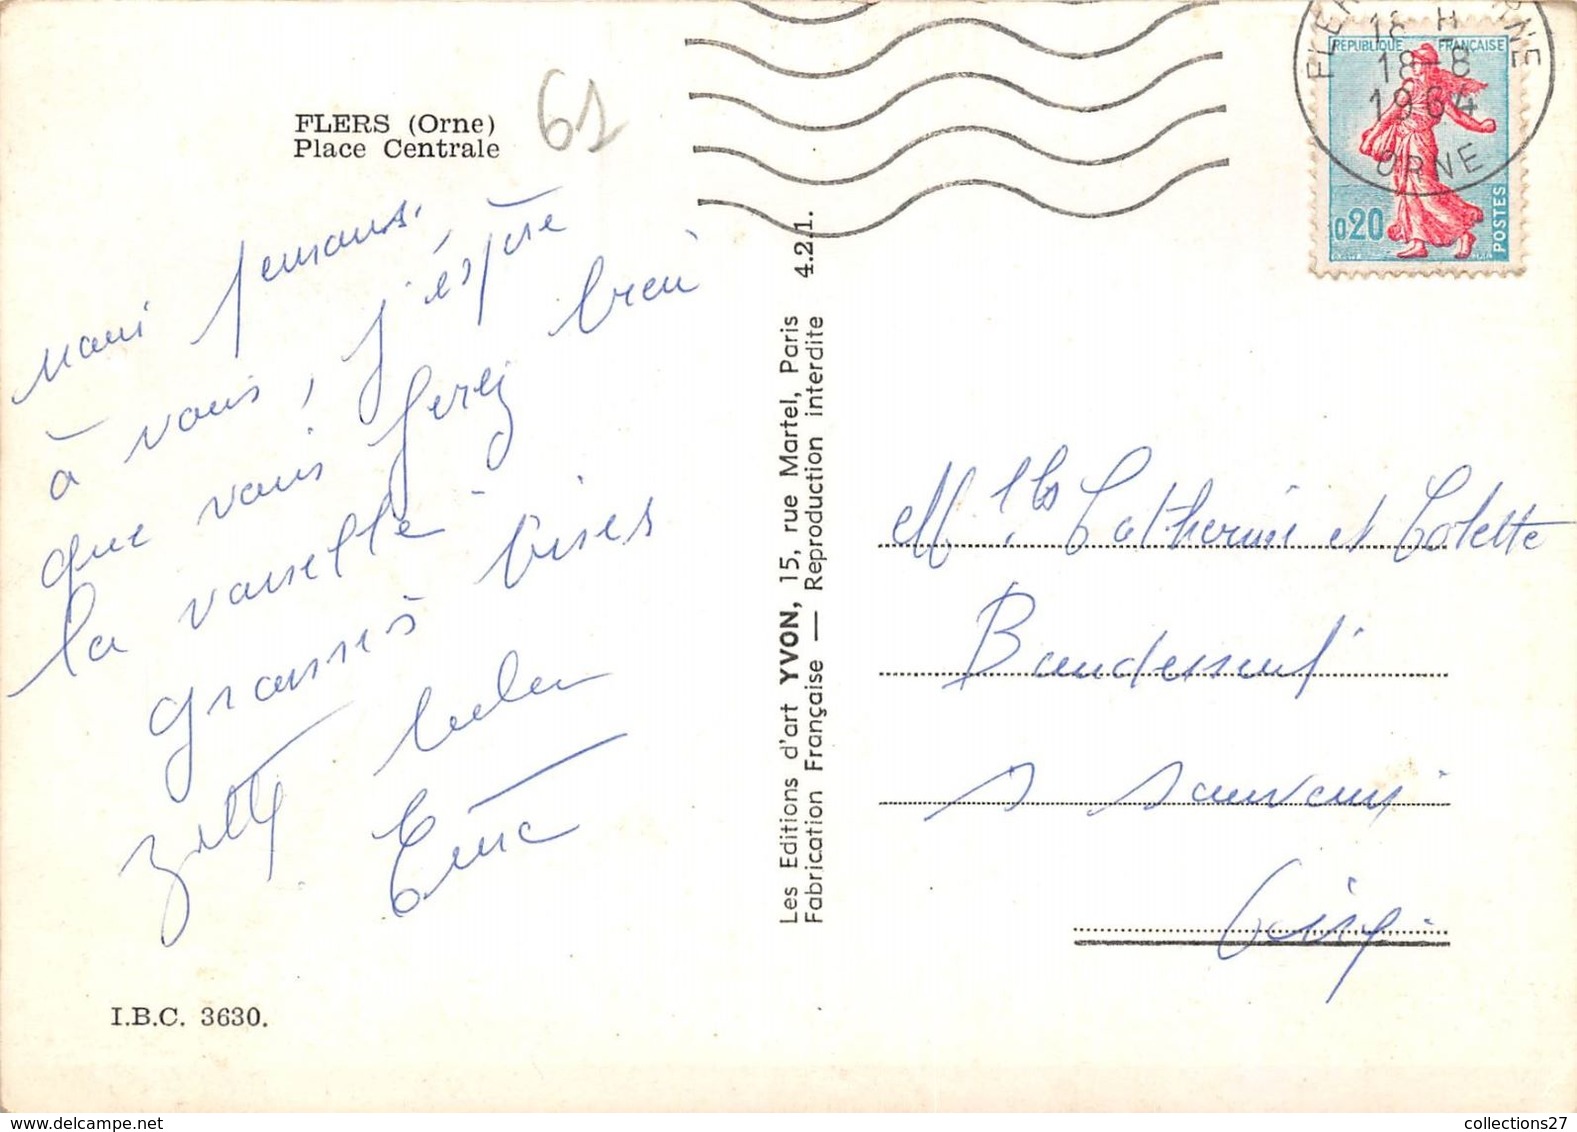 FLERS (Orne)
Place Centrale
61
nous pensons
à vous, j'éspère
que vous ferez bien
la vaisselle
grosses bises
I.B.C. 3630.
Les Editions d'art YVON, 15, rue Martel, Paris
Fabrication Française — Reproduction interdite
4.2.1.
18 H
18-8
1964
ORNE
RÉPUBLIQUE FRANÇAISE
0,20
POSTES
Mlles Catherine et Colette
collections27